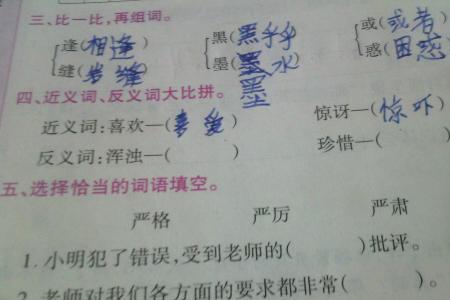 三、比一比,再组词。
逢(相逢) 黑(黑乎乎) 或(或者)
缝(岩缝) 墨(墨水) 惑(困惑)
墨
四、近义词、反义词大比拼。
近义词:喜欢—(喜爱) 惊讶—(惊吓)
反义词:浑浊—( ) 珍惜—( )
五、选择恰当的词语填空。
严格 严厉 严肃
1.小明犯了错误,受到老师的( )批评。
2.老师对我们各方面的要求都非常( )。